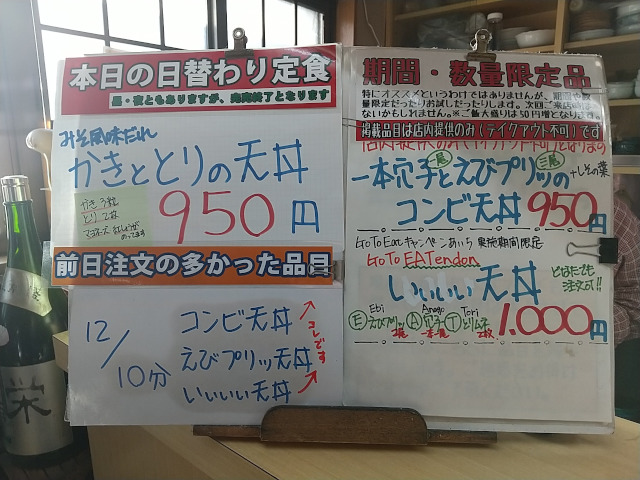 本日の日替わり定食
昼・夜ともありますが、完売終了となります
みそ風味だれ
かきととりの天丼
かき 3粒
とり 2枚
950円
前日注文の多かった品目
12/10分
コンビ天丼
えびプリッツ天丼
いいいい天丼
コレです
期間・数量限定品
特にオススメというわけではありませんが、期間や数
量限定だったりお試しだったりします。次回ご来店時
ないかもしれません。※ご飯大盛りは50円増となります。
掲載品目は店内提供のみ(テイクアウト不可)です
一本穴子とえびプリッツの
一尾
三尾
+しその葉
コンビ天丼 950円
Go To Eat キャンペーンあいち 実施期間限定
Go To EATendon
いいいい天丼
どなたでも
注文可!!
Ebi Anago Tori
Ⓔえびプリッツ Ⓐ穴子 Ⓣとりムネ
2尾 一本一尾 2枚
1,000円
栄